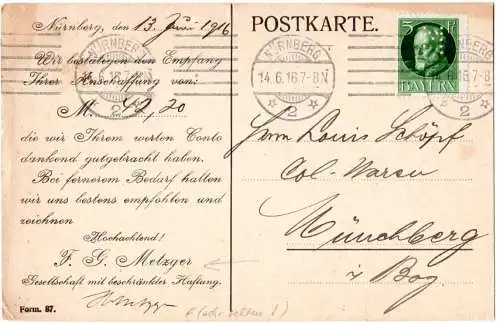 Nürnberg, den 13. Juni 1916
Wir bestätigen den Empfang
Ihrer Anschaffung von:
M. 42,20
die wir Ihrem werten Conto
dankend gutgebracht haben.
Bei fernerem Bedarf halten
wir uns bestens empfohlen und
zeichnen
Hochachtend!
F. G. Metzger
Gesellschaft mit beschränkter Haftung.
Form. 87.
POSTKARTE.
NÜRNBERG
14.6.16 7-8 V.
2
5 Pf
BAYERN
NÜRNBERG
6.16 7-8
2
6.16 7-8V
2
Herrn Louis Schöpf
Col-Waren
Münchberg
i/ Bay